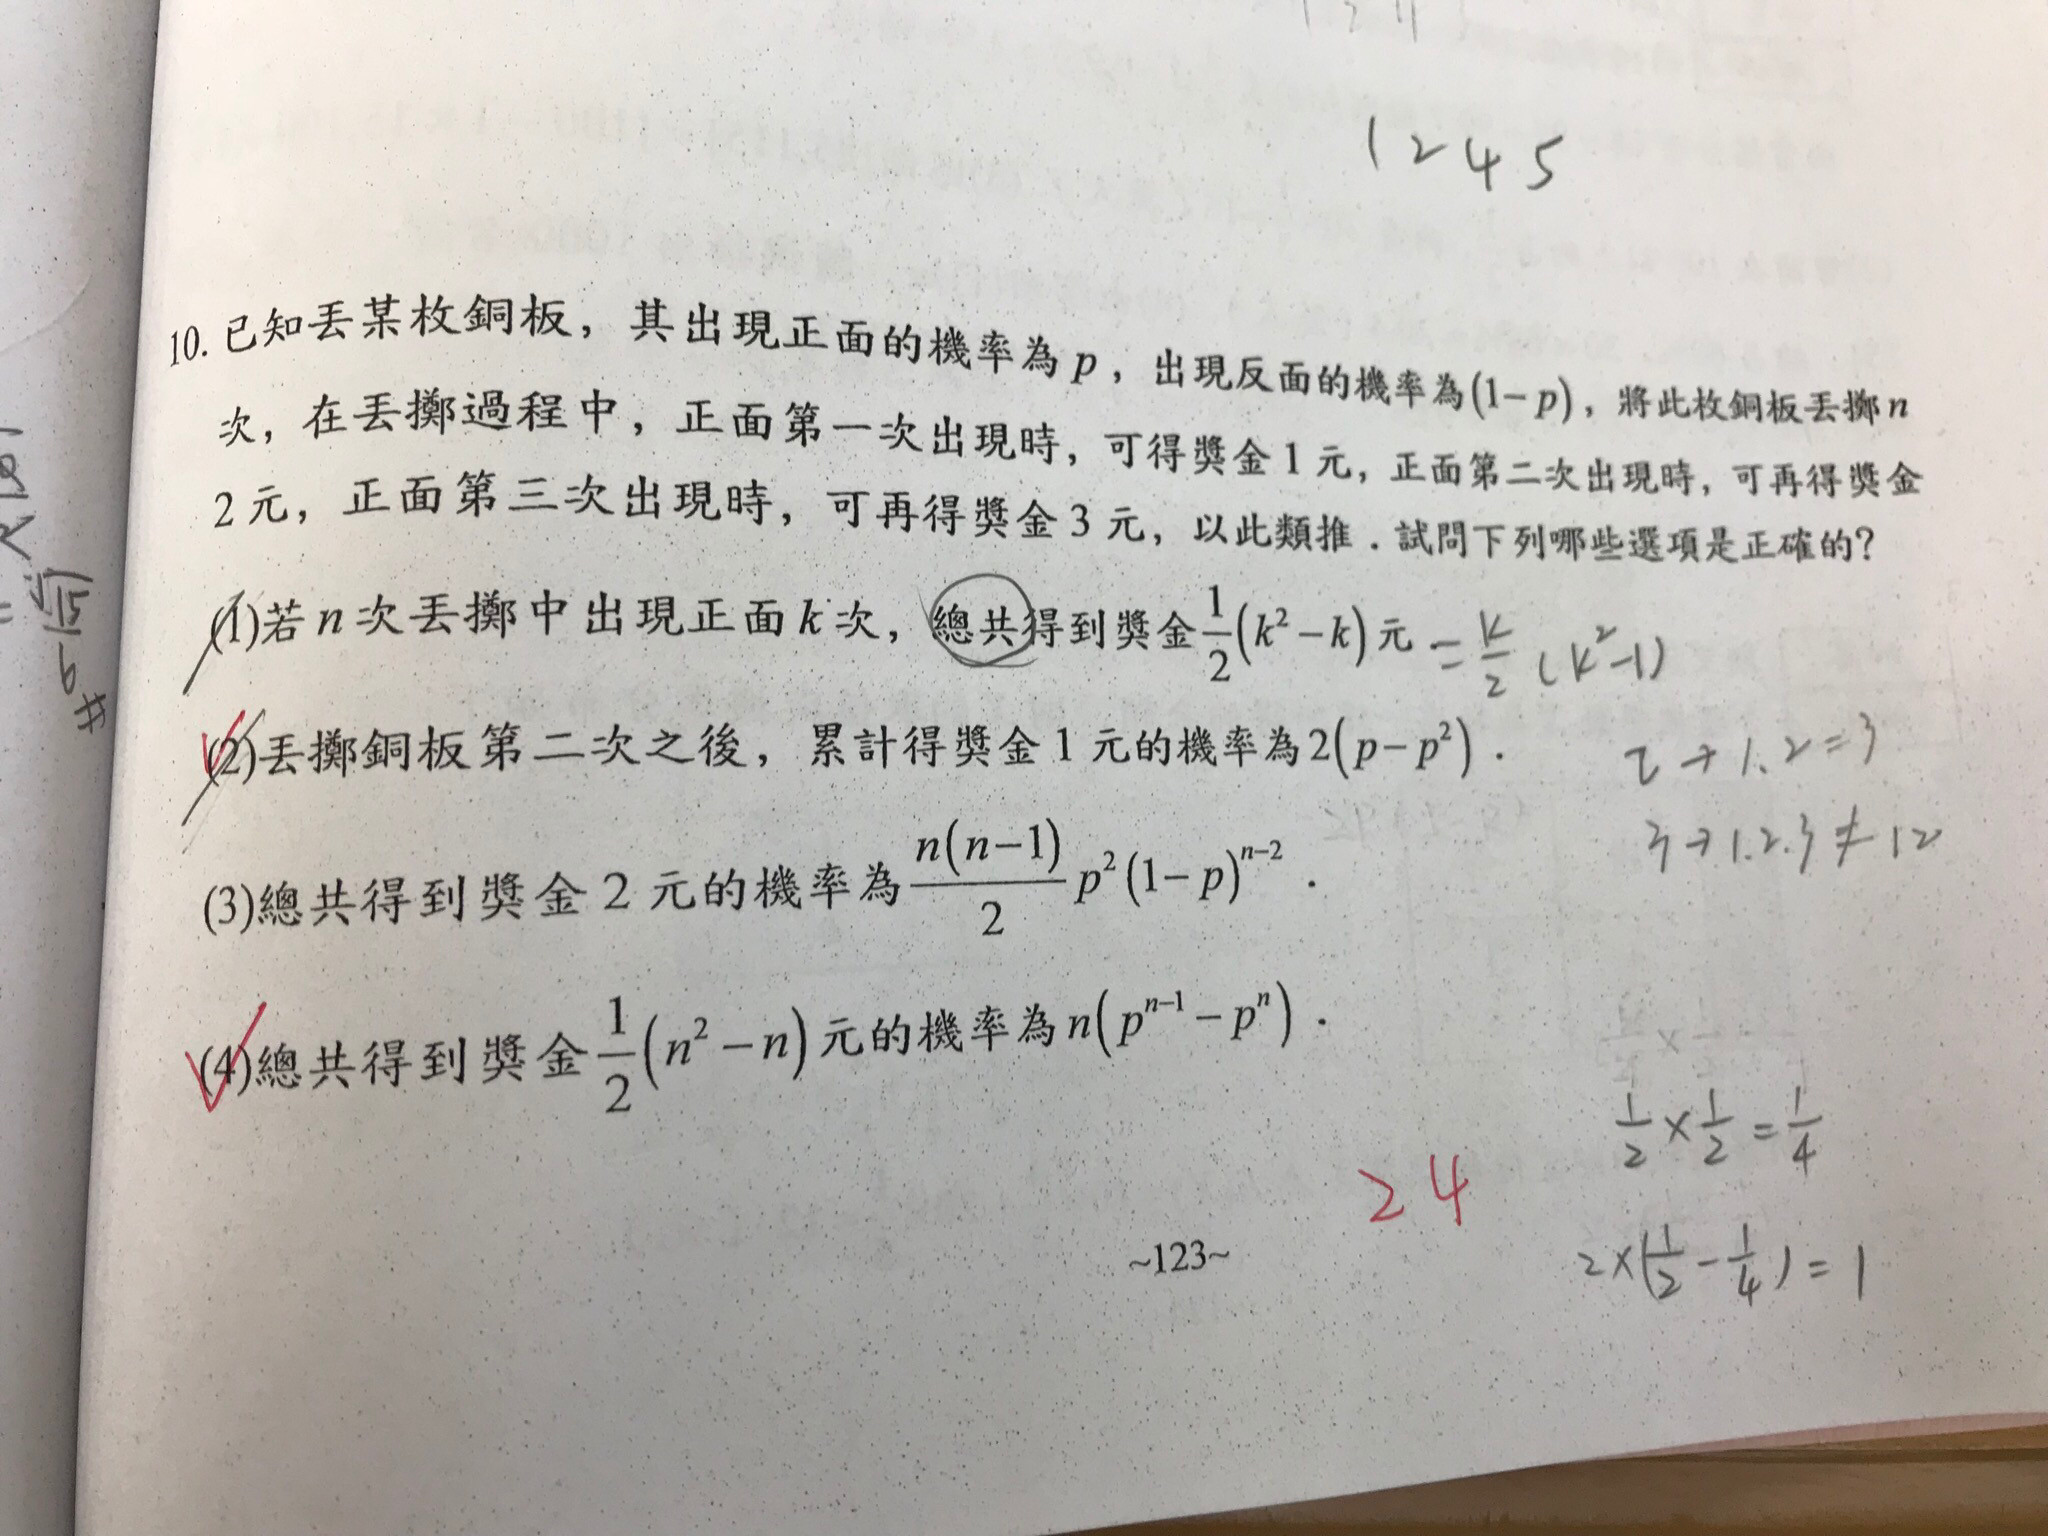 1 2 4 5
10. 已知丟某枚銅板，其出現正面的機率為p，出現反面的機率為(1-p)，將此枚銅板丟擲n
次，在丟擲過程中，正面第一次出現時，可得獎金1元，正面第二次出現時，可再得獎金
2元，正面第三次出現時，可再得獎金3元，以此類推．試問下列哪些選項是正確的?
(1)若n次丟擲中出現正面k次，總共得到獎金1/2(k²-k)元 = k/2 (k²-1)
(2)丟擲銅板第二次之後，累計得獎金1元的機率為2(p-p²)．
2→1.2=3
3→1.2.3≠12
(3)總共得到獎金2元的機率為n(n-1)/2 p²(1-p)ⁿ⁻²．
(4)總共得到獎金1/2(n²-n)元的機率為n(pⁿ⁻¹-pⁿ)．
1/2×1/2=1/4
2 4
2×(1/2-1/4)=1
~123~